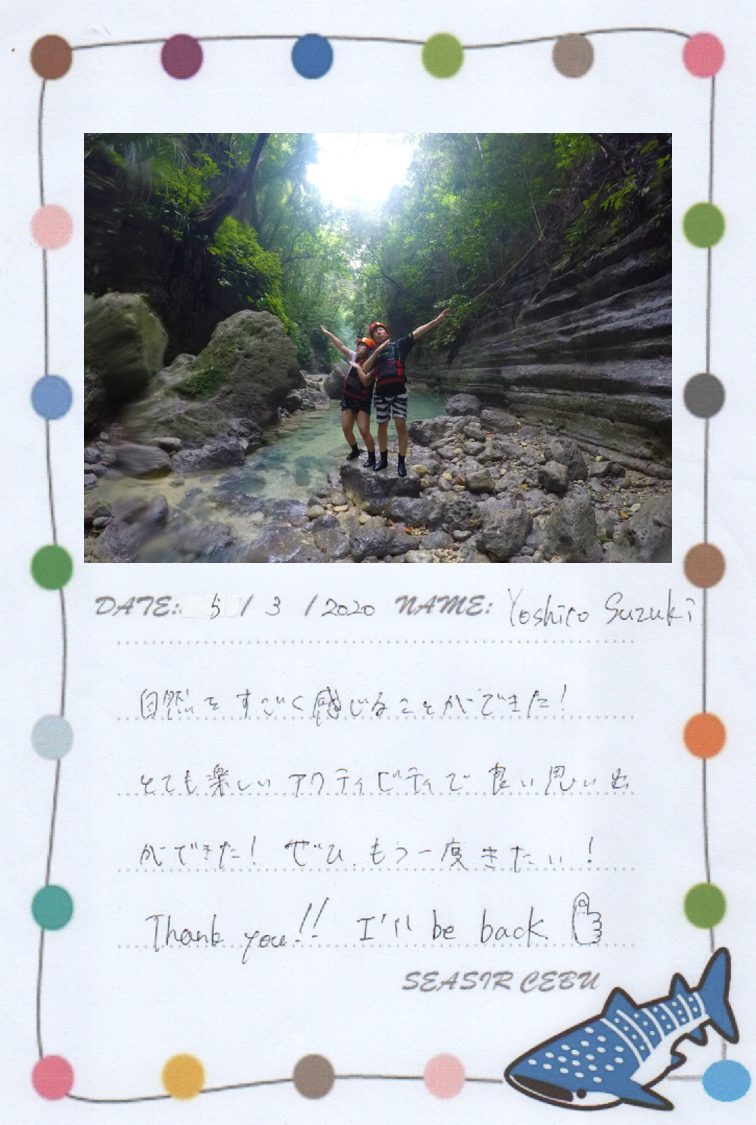 DATE: 5 / 3 / 2020 NAME: Yoshiro Suzuki
自然をすごく感じることができた!
とても楽しいアクティビティで良い思い出
ができた! ぜひ、もう一度きたい!
Thank you!! I'll be back
SEASIR CEBU